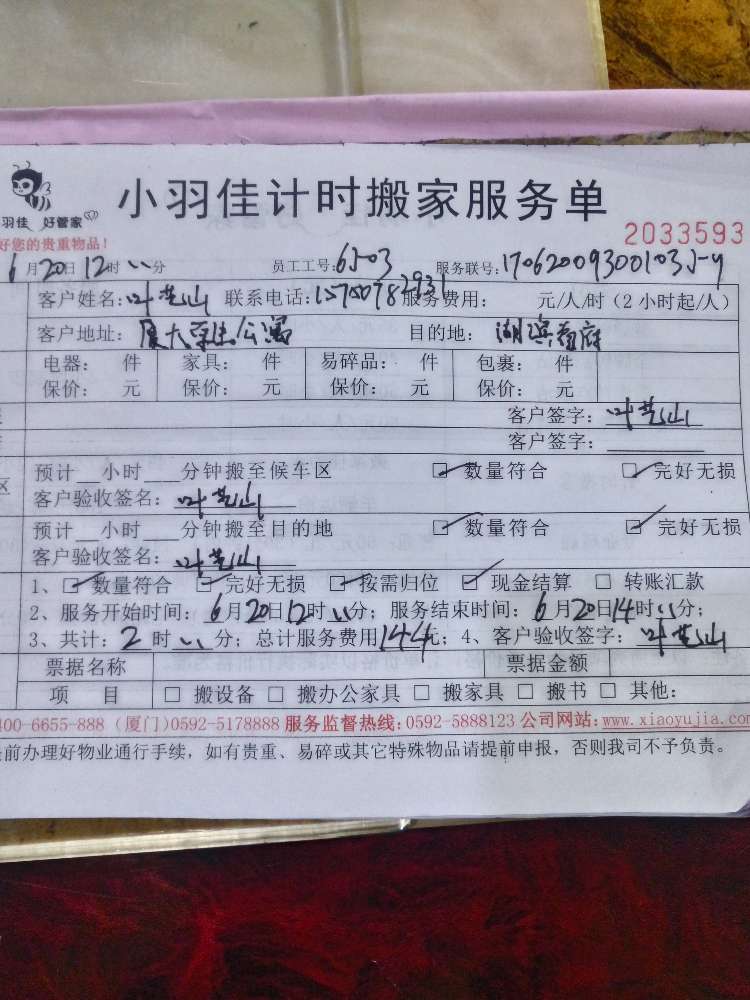 小羽佳计时搬家服务单
羽佳 好管家
好您的贵重物品！
2033593
6月20日12时〃分 员工工号：6J-03 服务联号：170620093001035-4
客户姓名：叶芝山 联系电话： 服务费用： 元/人/时（2小时起/人）
客户地址：厦大学生公寓 目的地：湖滨首府
电器： 件 家具： 件 易碎品： 件 包裹： 件
保价： 元 保价： 元 保价： 元 保价： 元
客户签字：叶芝山
客户签字：
预计 小时 分钟搬至候车区 ☑数量符合 ☑完好无损
区
客户验收签名：叶芝山
预计 小时 分钟搬至目的地 ☑数量符合 ☑完好无损
客户验收签名：叶芝山
1、☑数量符合 ☑完好无损 ☑按需归位 ☑现金结算 □转账汇款
2、服务开始时间：6月20日12时〃分；服务结束时间：6月20日14时〃分；
3、共计：2时〃分；总计服务费用144元；4、客户验收签字：叶芝山
票据名称 票据金额
项 目 □搬设备 □搬办公家具 □搬家具 □搬书 □其他：
400-6655-888（厦门）0592-5178888 服务监督热线：0592-5888123 公司网站：www.xiaoyujia.com
前办理好物业通行手续，如有贵重、易碎或其它特殊物品请提前申报，否则我司不予负责。